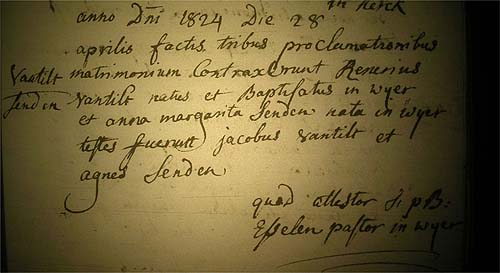 in kerck
anno Dñi 1824 Die 28
aprilis factis tribus proclamationibus
Vantilt matrimonium Contraxerunt Renerius
Senden Vantilt natus et Baptisatus in wyer
et anna margarita Senden nata in wyer
testes fuerunt jacobus vantilt et
agnes Senden
quod attestor
Esselen pastor in wyer